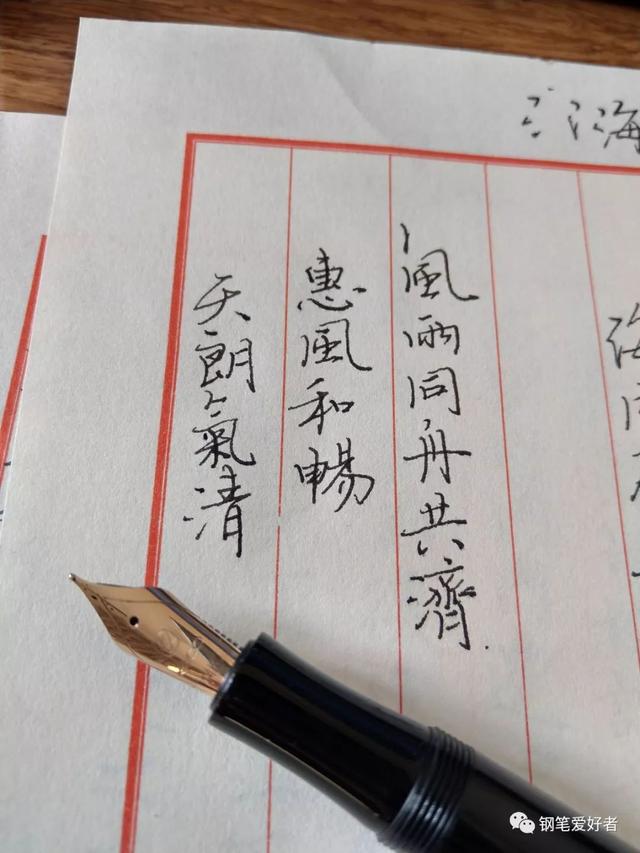 風雨同舟共濟
惠風和暢
天朗氣清
钢笔爱好者